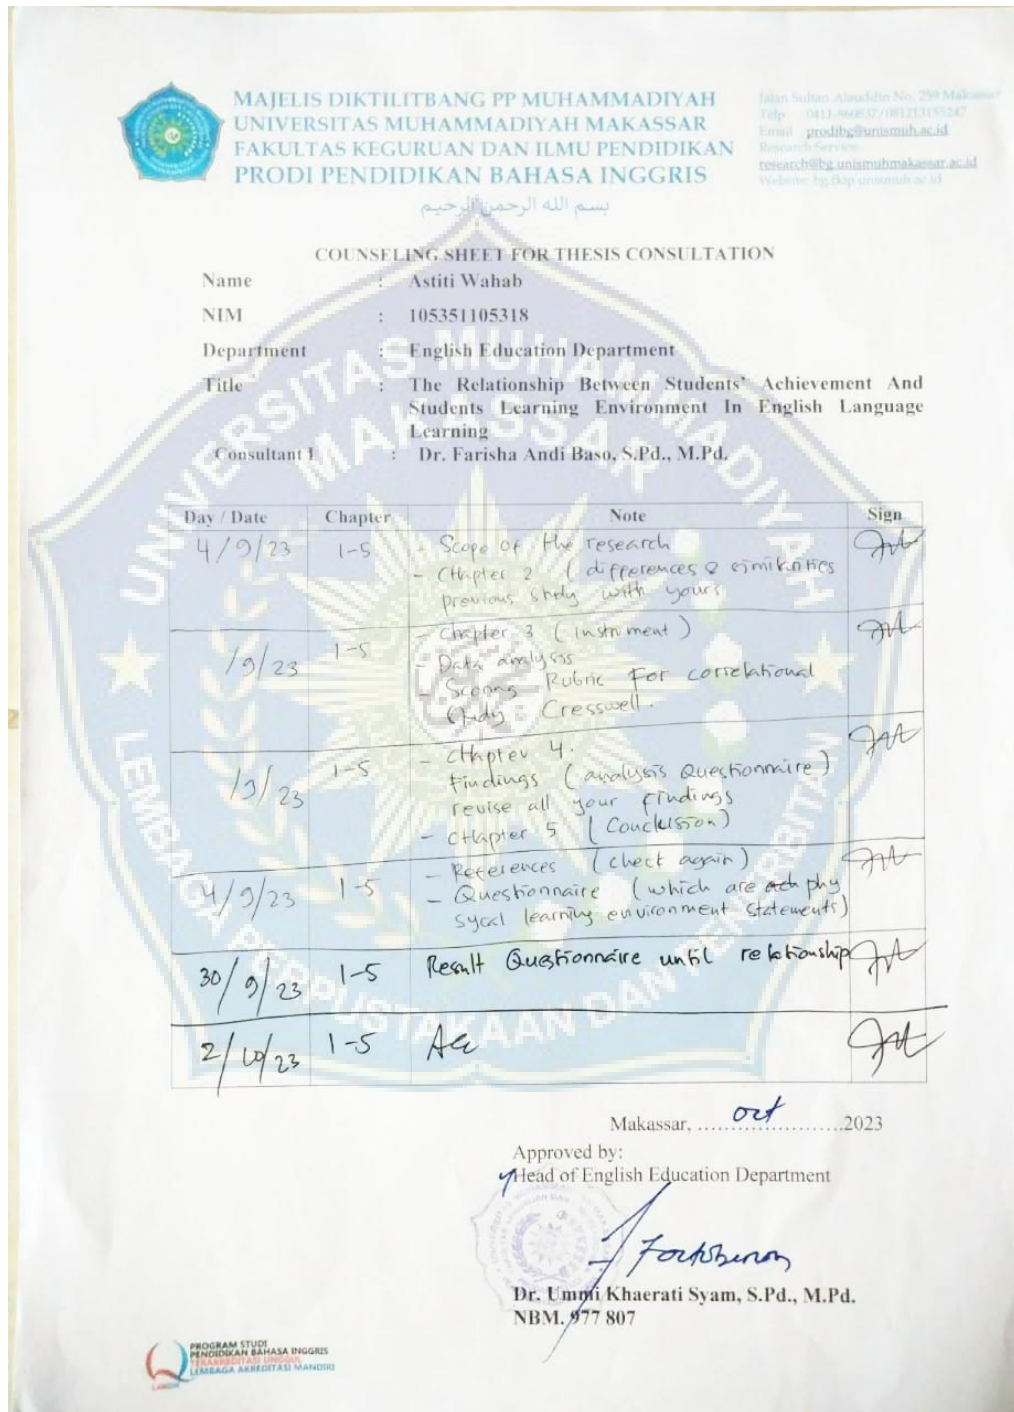 MAJELIS DIKTILITBANG PP MUHAMMADIYAH
UNIVERSITAS MUHAMMADIYAH MAKASSAR
FAKULTAS KEGURUAN DAN ILMU PENDIDIKAN
PRODI PENDIDIKAN BAHASA INGGRIS
Jalan Sultan Alauddin No. 259 Makassar
Telp
Email prodibg@unismuh.ac.id
Research Service
research@bg.unismuhmakassar.ac.id
Website: bg.fkip.unismuh.ac.id
بسم الله الرحمن الرحيم
COUNSELING SHEET FOR THESIS CONSULTATION
Name : Astiti Wahab
NIM : 105351105318
Department : English Education Department
Title : The Relationship Between Students' Achievement And
Students Learning Environment In English Language
Learning
Consultant I : Dr. Farisha Andi Baso, S.Pd., M.Pd.
UNIVERSITAS MUHAMMADIYAH
MAKASSAR
LEMBAGA PERPUSTAKAAN DAN PENERBITAN
Day / Date Chapter Note Sign
4/9/23 1-5 - Scope of the research
- Chapter 2 (differences & similarities
previous study with yours
/9/23 1-5 - Chapter 3 (instrument)
- Data analysis
- Scoring Rubric For correlational
Study Cresswell.
/9/23 1-5 - Chapter 4.
Findings (analysis Questionnaire)
revise all your findings
- Chapter 5 (Conclusion)
4/9/23 1-5 - References (check again)
- Questionnaire (which are phy
sycal learning environment statements)
30/9/23 1-5 Result Questionnaire until relationship
2/10/23 1-5 Acc
Makassar, ......oct......2023
Approved by:
Head of English Education Department
Dr. Ummi Khaerati Syam, S.Pd., M.Pd.
NBM. 977 807
PROGRAM STUDI
PENDIDIKAN BAHASA INGGRIS
TERAKREDITASI UNGGUL
LEMBAGA AKREDITASI MANDIRI